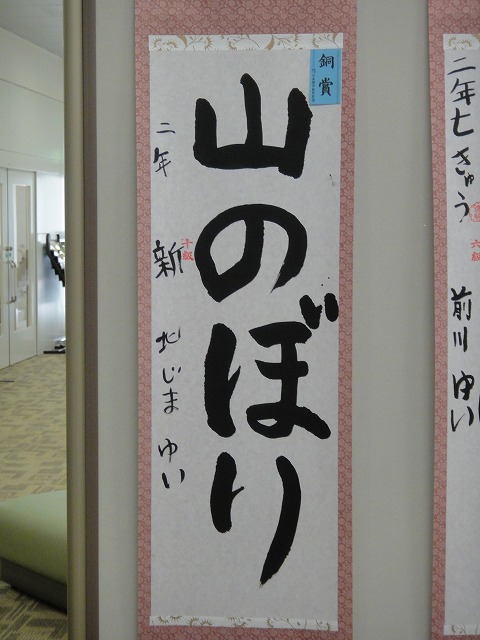 銅賞
山のぼり
二年 新 北じま ゆい
十級
二年七きゅう 前川 ゆい
六級